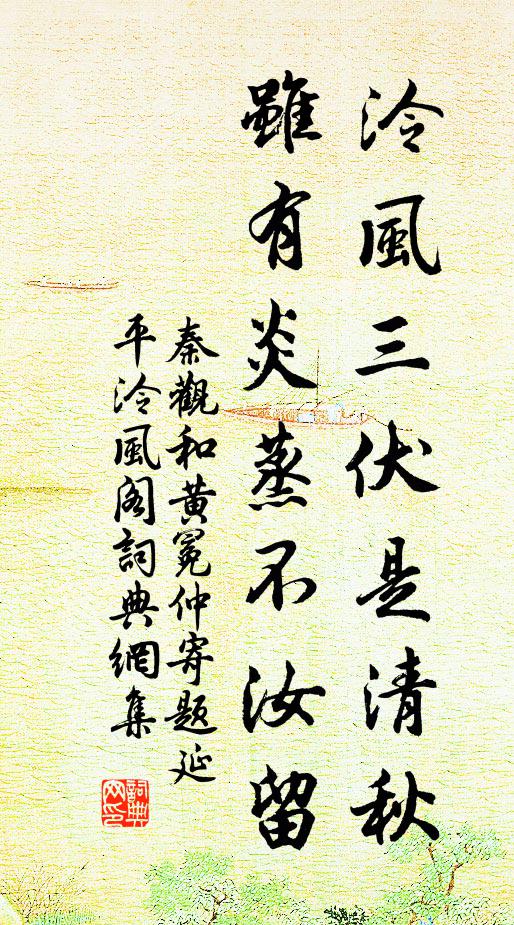 泠風三伏是清秋
雖有炎蒸不汝留
秦觀和黃冕仲寄題延
平泠風閣詞典網集
詞典
网印